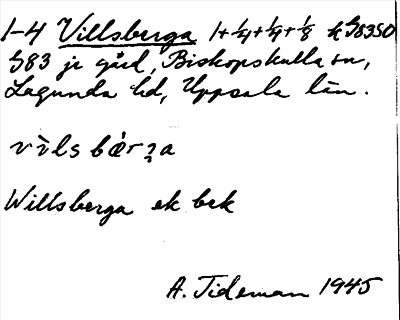 1-4 Villsberga 1+1/4+1/4+1/8 k G8350
G83 jr gård, Biskopskulla sn,
Lagunda hd, Uppsala län.
Willsberga ek bek
A. Tideman 1945